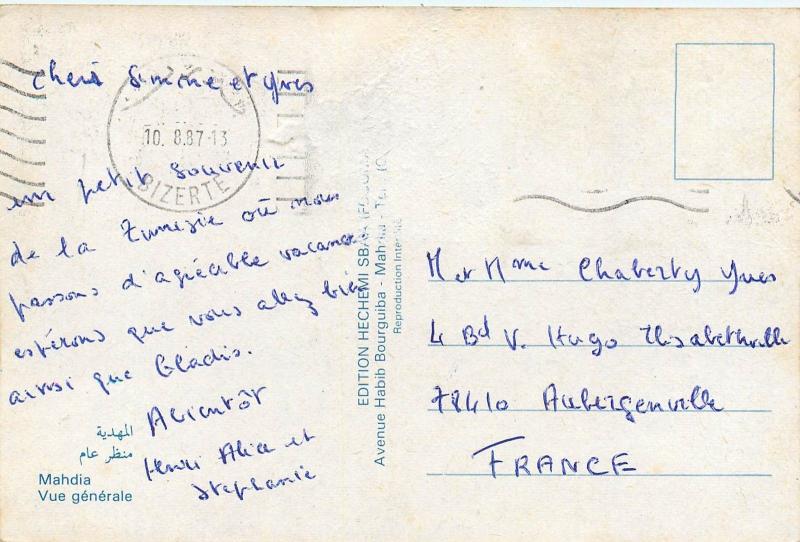 Chers Simone et Yves
10. 8.87-13
BIZERTE
un petit souvenir
de la Tunisie où nous
passons d'agréable vacances
espérons que vous allez bien
ainsi que Gladis.
Abientôt
Henri Alice et
Stephanie
المهدية
منظر عام
Mahdia
Vue générale
EDITION HECHEMI
Avenue Habib Bourguiba - Mahdia -
Reproduction Interdite
M et Mme Chaberty Yves
4 Bd V. Hugo Elisabethville
78410 Aubergenville
FRANCE